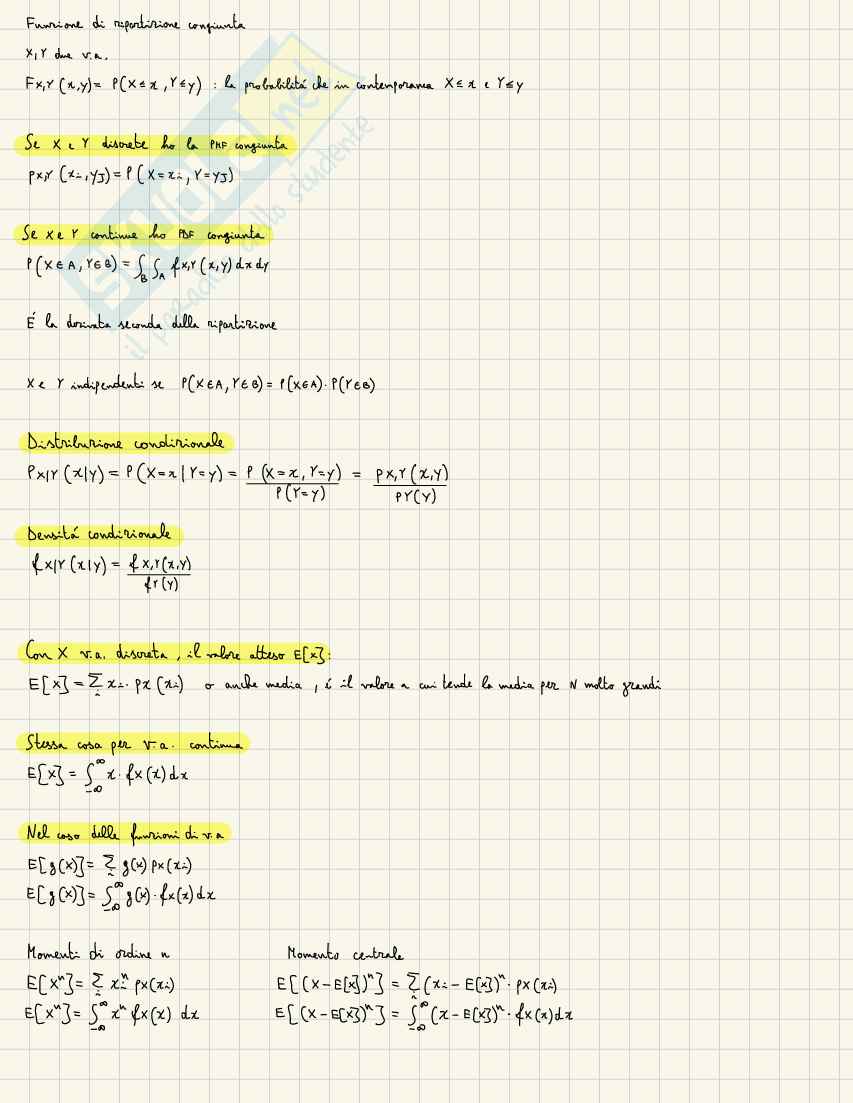 Funzione di ripartizione congiunta
X,Y due v.a.
FX,Y (x,y) = P(X≤x , Y≤y) : la probabilitá che in contemporanea X≤x e Y≤y
Se X e Y discrete ho la PMF congiunta
pX,Y (xi,yJ) = P( X=xi , Y=yJ)
Se X e Y continue ho PDF congiunta
P(X∈A , Y∈B) = ∫B ∫A fX,Y (x,y) dx dy
É la derivata seconda della ripartizione
X e Y indipendenti se P(X∈A, Y∈B) = P(X∈A)·P(Y∈B)
Distribuzione condizionale
PX|Y (x|y) = P(X=x | Y=y) = P (X=x , Y=y) / P(Y=y) = pX,Y (x,y) / pY(y)
Densitá condizionale
fX|Y (x|y) = fX,Y(x,y) / fY(y)
Con X v.a. discreta , il valore atteso E[X]:
E[X] = Σi xi · pX (xi) o anche media , é il valore a cui tende la media per N molto grandi
Stessa cosa per v.a. continua
E[X] = ∫-∞^∞ x · fX(x) dx
Nel caso delle funzioni di v.a
E[g(X)] = Σi g(x) pX(xi)
E[g(X)] = ∫-∞^∞ g(x) · fX(x) dx
Momenti di ordine n Momento centrale
E[X^n] = Σi xi^n pX(xi) E[(X-E[X])^n] = Σi (xi - E[X])^n · pX(xi)
E[X^n] = ∫-∞^∞ x^n fX(x) dx E[(X-E[X])^n] = ∫-∞^∞ (x - E[X])^n · fX(x) dx